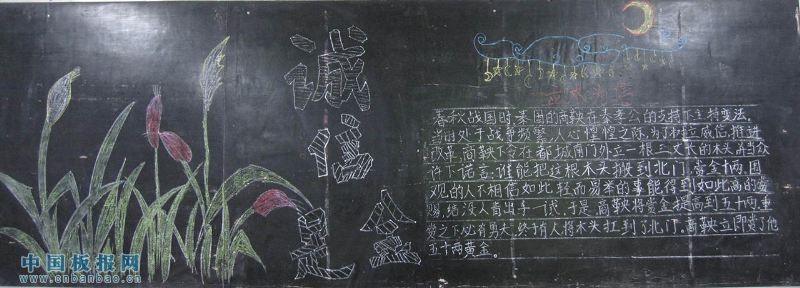 诚信是金
立木为信
春秋战国时秦国的商鞅在秦孝公的支持下主持变法,
当时处于战争频繁,人心惶惶之际,为了树立威信,推进
改革,商鞅下令在都城南门外立一根三丈长的木头,并当众
许下诺言:谁能把这根木头搬到北门,赏金十两,围
观的人不相信如此轻而易举的事能得到如此高的赏
赐,结果没人肯出手一试。于是,商鞅将赏金提高到五十两,重
赏之下必有勇夫,终于有人将木头扛到了北门。商鞅立即赏了他
五十两黄金。
中国板报网
www.cnbanbao.cn